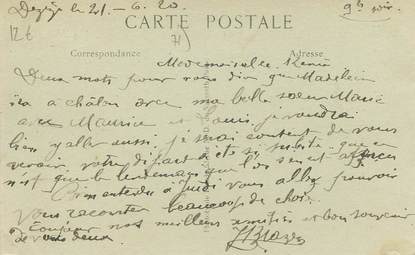 le 21 - 6. 20. 9h soir
CARTE POSTALE
126
71
Correspondance Adresse
Mademoiselle
Deux mots pour vous dire que Madeleine
ira a châlon avec ma belle sœur Marie
avec Maurice et Louis, je voudrai
bien y aller aussi je serai content de vous
revoir votre départ été si que
n'est que le lendemain que l'on sent
Bien entendu a Jeudi vous allez pouvoir
vous raconter beaucoup de choses
Toujour nos meilleurs amitiés et bon souvenir
de vous deux.